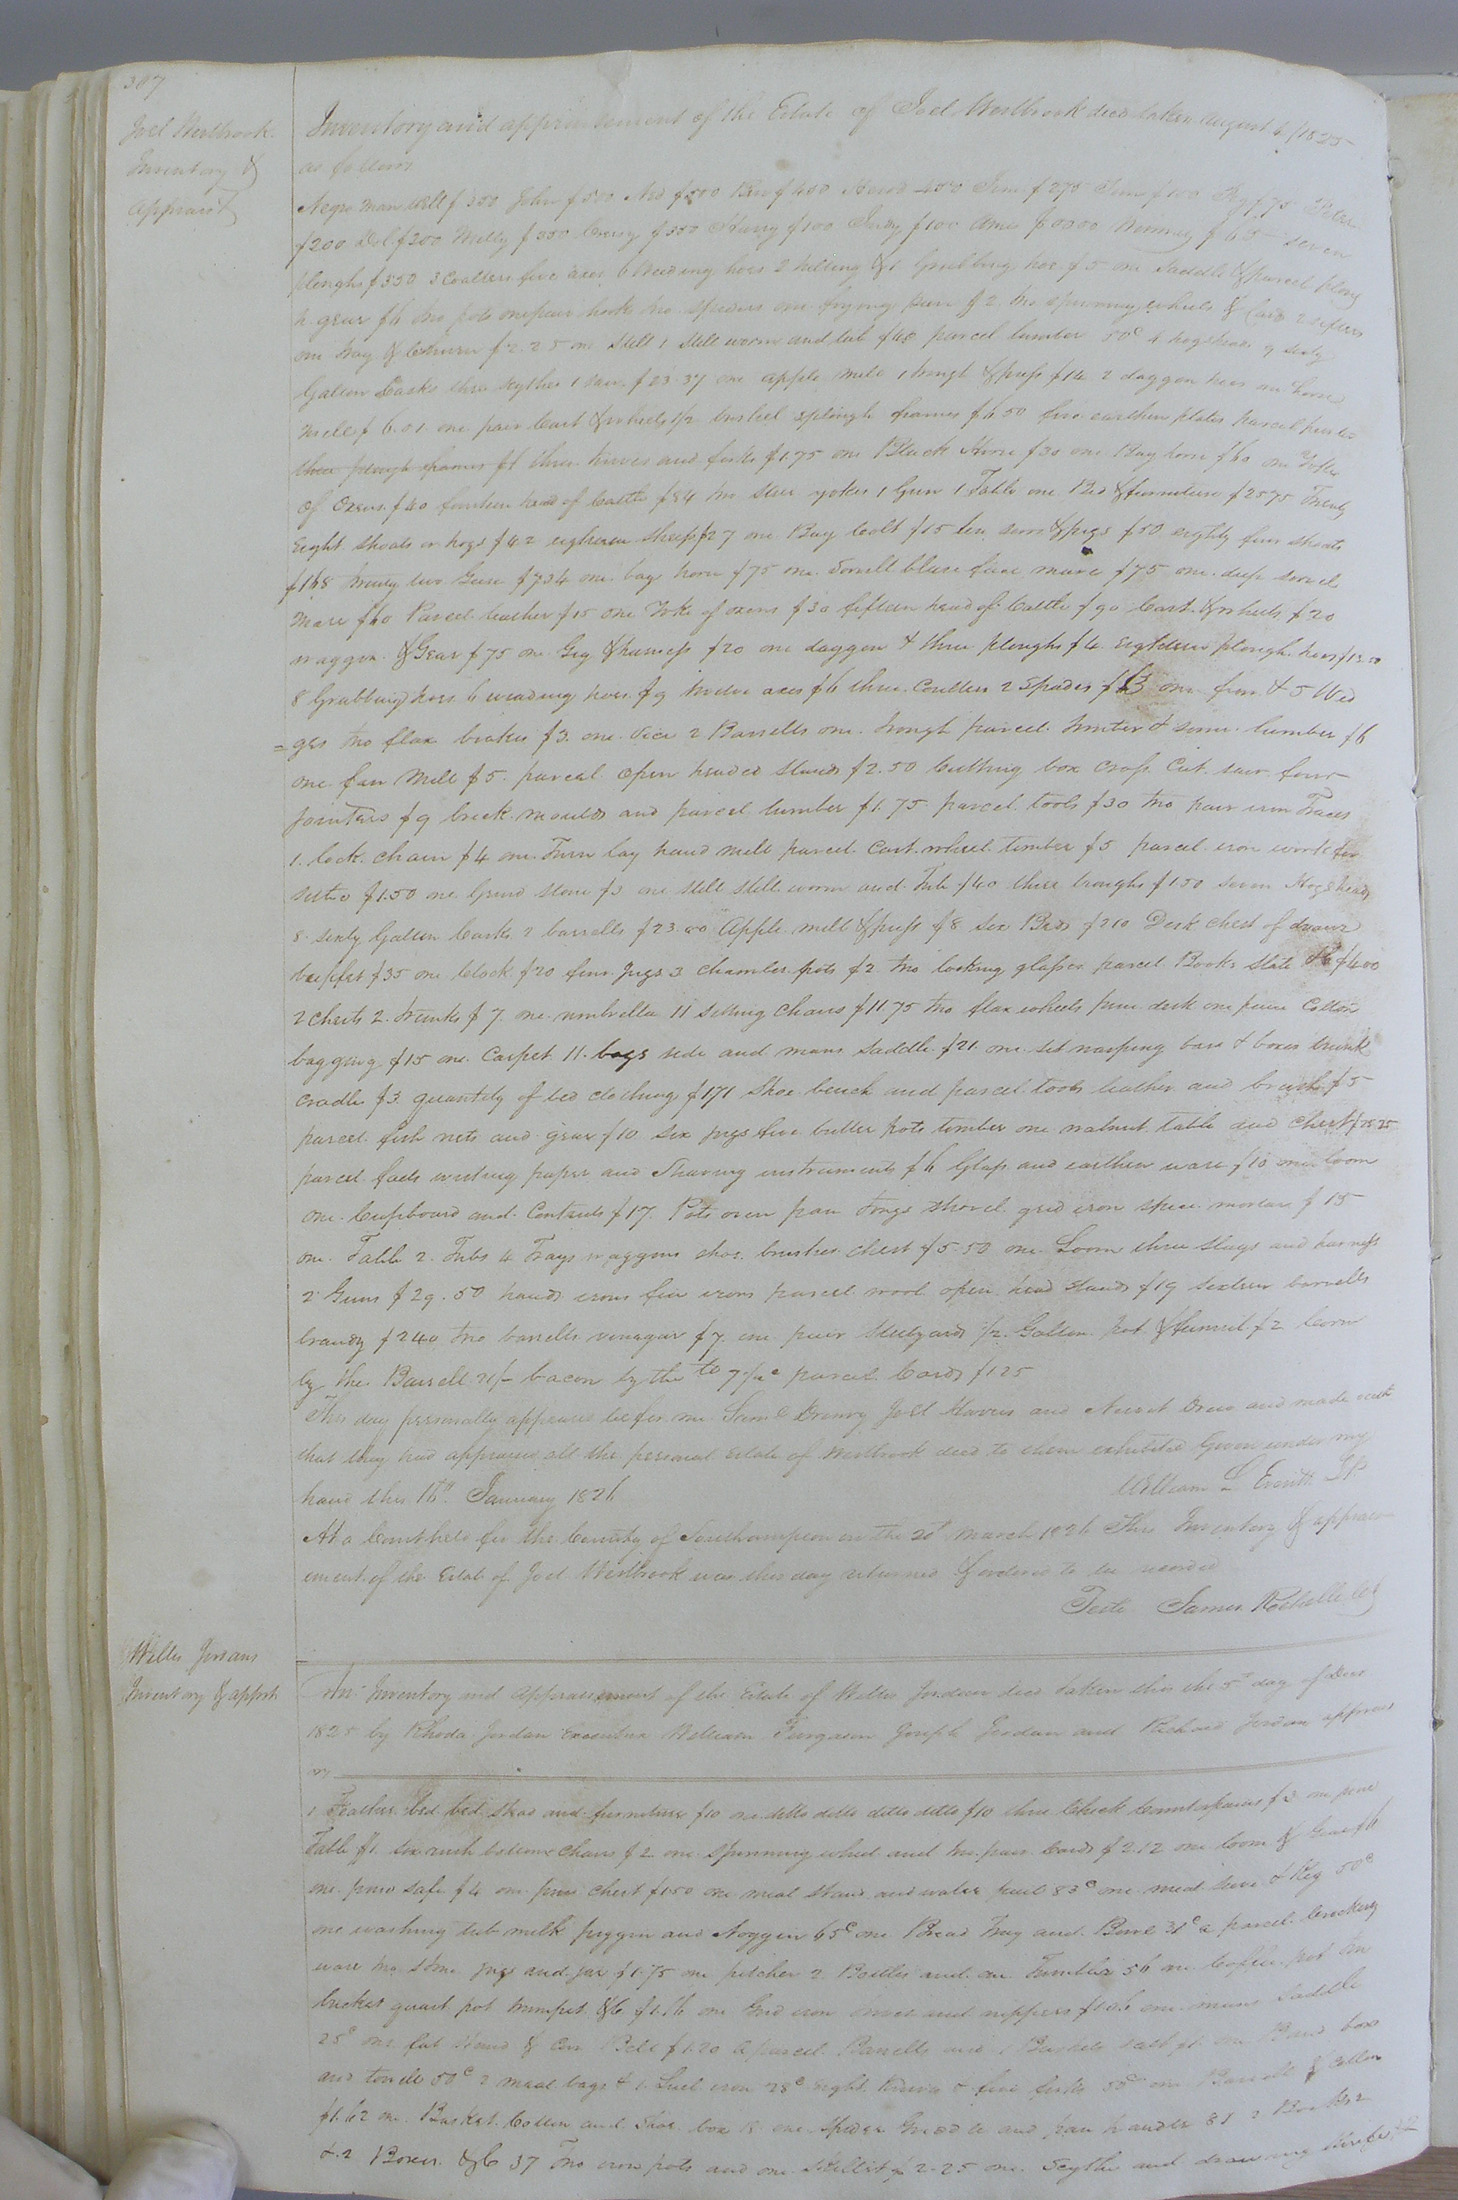 307
Joel Westbrook
Inventory &
Appraist
Inventory and appraisement of the Estate of Joel Westbrook decd taken August 6 1825
as follows
Negro man Will $350 John $500 Ned $500 Ben $400 Jim $275 $100 $75 Peter
$200 Dol $200 Milly $350 $350 $100 $100 seven
ploughs $3.50 3 Coulters five axes 6 Weeding hoes 2 hilling & 1 Grubbing hoe $5 one Saddle & parcel plough
gear $6 two pots one pair hooks two spiders one frying pan $2 two spinning wheels & Cards
one tray & Churn $2.25 one Still 1 Still worm and tub $40 parcel lumber 50c 4 hogsheads 9 sixty
Gallon Casks three scythes 1 saw $23.37 one apple mill 1 trough & press $14 2 daggon hoes one
mill $6.01 one pair Cart & wheels 1/2 bushel plough frames $6.50 five earthen plates parcel pewter
three plough frames $1 three knives and forks $1.75 one Black Horse $30 one Bay horse $60 one Yoke
of Oxen $40 fourteen head of Cattle $84 two steer yokes 1 Gun 1 Table one Bed & furniture $25.75 Twenty
Eight shoats or hogs $42 eighteen sheep $27 one Bay Colt $15 ten sows & pigs $50 eighty four shoats
$168 twenty two Geese $7.34 one bay horse $75 one Sorrell blaze face mare $75 one deep sorrel
mare $60 Parcel leather $15 one Yoke of oxens $30 fifteen head of Cattle $90 Cart & wheels $20
waggon & Gear $75 one Gig & harness $20 one daggon & three ploughs $4 eighteen plough hoes $13.50
8 Grubbing hoes 6 weading hoes $9 twelve axes $6 three Coulters 2 Spades $3 one & 5 Wed
=ges two flax brakes $3 one vice 2 Barrells one trough parcel & some lumber $6
one fan Mill $5 parcel open headed stands $2.50 Cutting box Cross Cut saw four
jointers $9 brick moulds and parcel lumber $1.75 parcel tools $30 two pair iron Traces
1 lock chain $4 one Turn lay hand mill parcel Cart wheel timber $5 parcel iron work
$1.50 one Grind stone $3 one still still worm and Tub $40 three troughs $1.50 seven Hogsheads
8 sixty Gallon Casks 2 barrells $23.00 Apple mill & press $8 six Beds $210 Desk Chest of drawrs
buffet $35 one Clock $20 four Jugs 3 chamber pots $2 two looking glasses parcel Books Slate &c $4.00
2 Chests 2 trunks $7 one umbrella 11 Setting Chairs $11.75 two flax wheels pine desk one piece Cotton
bagging $15 one Carpet 11 bags side and mans saddle $21 one set warping bars & boxes trunk
Cradle $3 quantity of bed clothing $171 Shoe bench and parcel tools leather and brush $5
parcel fish nets and gear $10 six jugs five butter pots timber one walnut table and chest $25.25
parcel writing paper and Shaving instruments $6 Glass and earthen ware $10 one loom
one Cupboard and Contents $17 Pots oven pan tongs shovel grid iron spice mortar $15
one Table 2 Tubs 4 Trays waggons shoe brushes chest $5.50 one Loom three Slays and harness
2 Guns $29.50 hand irons fire irons parcel wool open head stands $19 sixteen barrells
brandy $240 two barrells vinegar $7 one pair Steelyards 1/2 Gallon pot & funnel $2 Corn
by the Barrell 21/- bacon by the lb 7 1/2c parcel Cards $1.25
This day personally appeared before me Saml Drewry Joel Harris and Drew and made oath
that they had appraised all the personal Estate of Westbrook decd to them exhibited Given under my
hand this 16th January 1826
William L Everitt JP
At a Court held for the County of Southampton on the 20th March 1826 This Inventory & appraise
ment of the Estate of Joel Westbrook was this day returned & ordered to be recorded
Teste James Rochelle Clk
Willis Jordans
Inventory & apprst
An Inventory and appraisement of the Estate of Willis Jordan decd taken this the 5th day of Decr
1825 by Rhoda Jordan Executrix William Ferguson Joseph Jordan and Richard Jordan apprais
ors
1 Feather bed bed stead and furniture $10 one ditto ditto ditto ditto $10 three Check Counterpanes $3 one pine
Table $1 six rush bottom Chairs $2 one spinning wheel and two pair Cards $2.12 one loom & Gear $6
one pine safe $4 one pine chest $1.50 one meal stand and water pail 83c one meal sive & Keg 50c
one washing tub milk piggin and Noggin 65c one Bread tray and Bowl 31c a parcel Crockery
ware two stone jugs and jar $1.75 one pitcher 2 Bottles and one Tumbler 56 one Coffee pot tin
bucket quart pot trumpet &c $1.16 one Grid iron and nippers one mans Saddle
25c one fat stand & $1.20 A parcel Barrells and 1 Bushels salt $1 one Bread box
and towels 50c 2 meal bags & 1 flat iron 28c eight Knives & five forks 50c one Barrell & Cotton
$1.62 one Basket Cotton and Shoe box one Spider Griddle and pan handle 81 2 Books
& 2 Boxes &c 37 Two iron pots and one skillet $2.25 one Scythe and drawing Knife